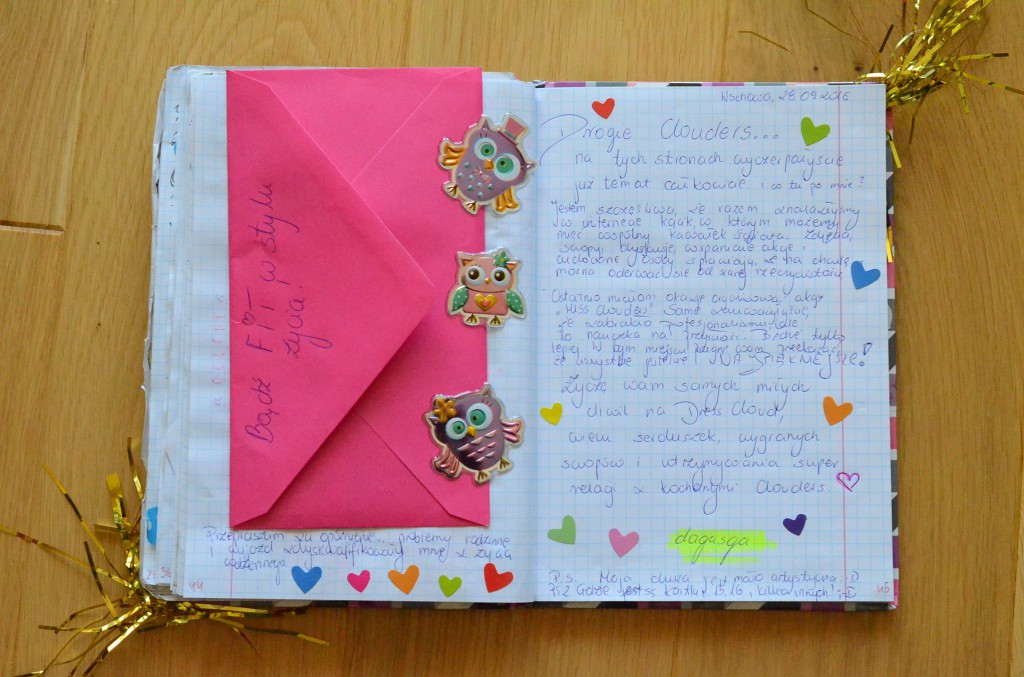 Bądź FIT i w stylu
życia!
Przepraszam za opóźnienie... problemy rodzinne
i wyjazd zdyskwalifikowały mnie z życia
codziennego
44
Wschowa, 28.09.2016
Drogie Clouders...
na tych stronach wyczerpałyście
już temat całkowicie i co tu po mnie?
Jestem szczęśliwa, że razem znalazłyśmy
w internecie kącik, w którym możemy
mieć wspólny kawałek świata. Zdjęcia,
swopy, dyskusje, wspaniałe akcje i
osoby sprawiają, że na chwilę
można oderwać się od szarej rzeczywistości.
Ostatnio miałam okazję organizować akcję
"MISS Clouders" Same
że
to na przyszłość. Będzie tylko
lepiej. W tym miejscu wam
że wszystkie jesteście !
Życzę wam samych miłych
chwil na Dress Cloud,
wielu serduszek, wygranych
swopów i utrzymywania super
relacji z kochanymi Clouders.
dagasga
P.S. Moja dusza jest mało artystyczna :-D
PS2 Gdzie jest są kartki 15, 16, i kilka innych? :-D
45